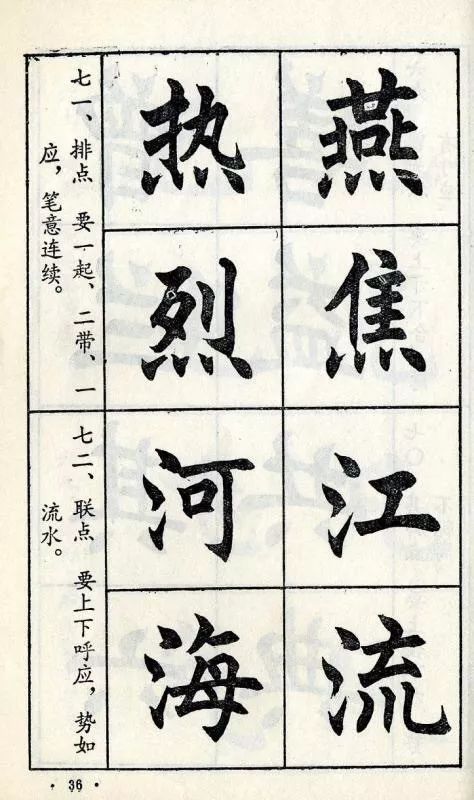 燕焦
热烈
七一、排点 要一起、二带、一
应，笔意连续。
江流
河海
七二、联点 要上下呼应，势如
流水。
· 36 ·